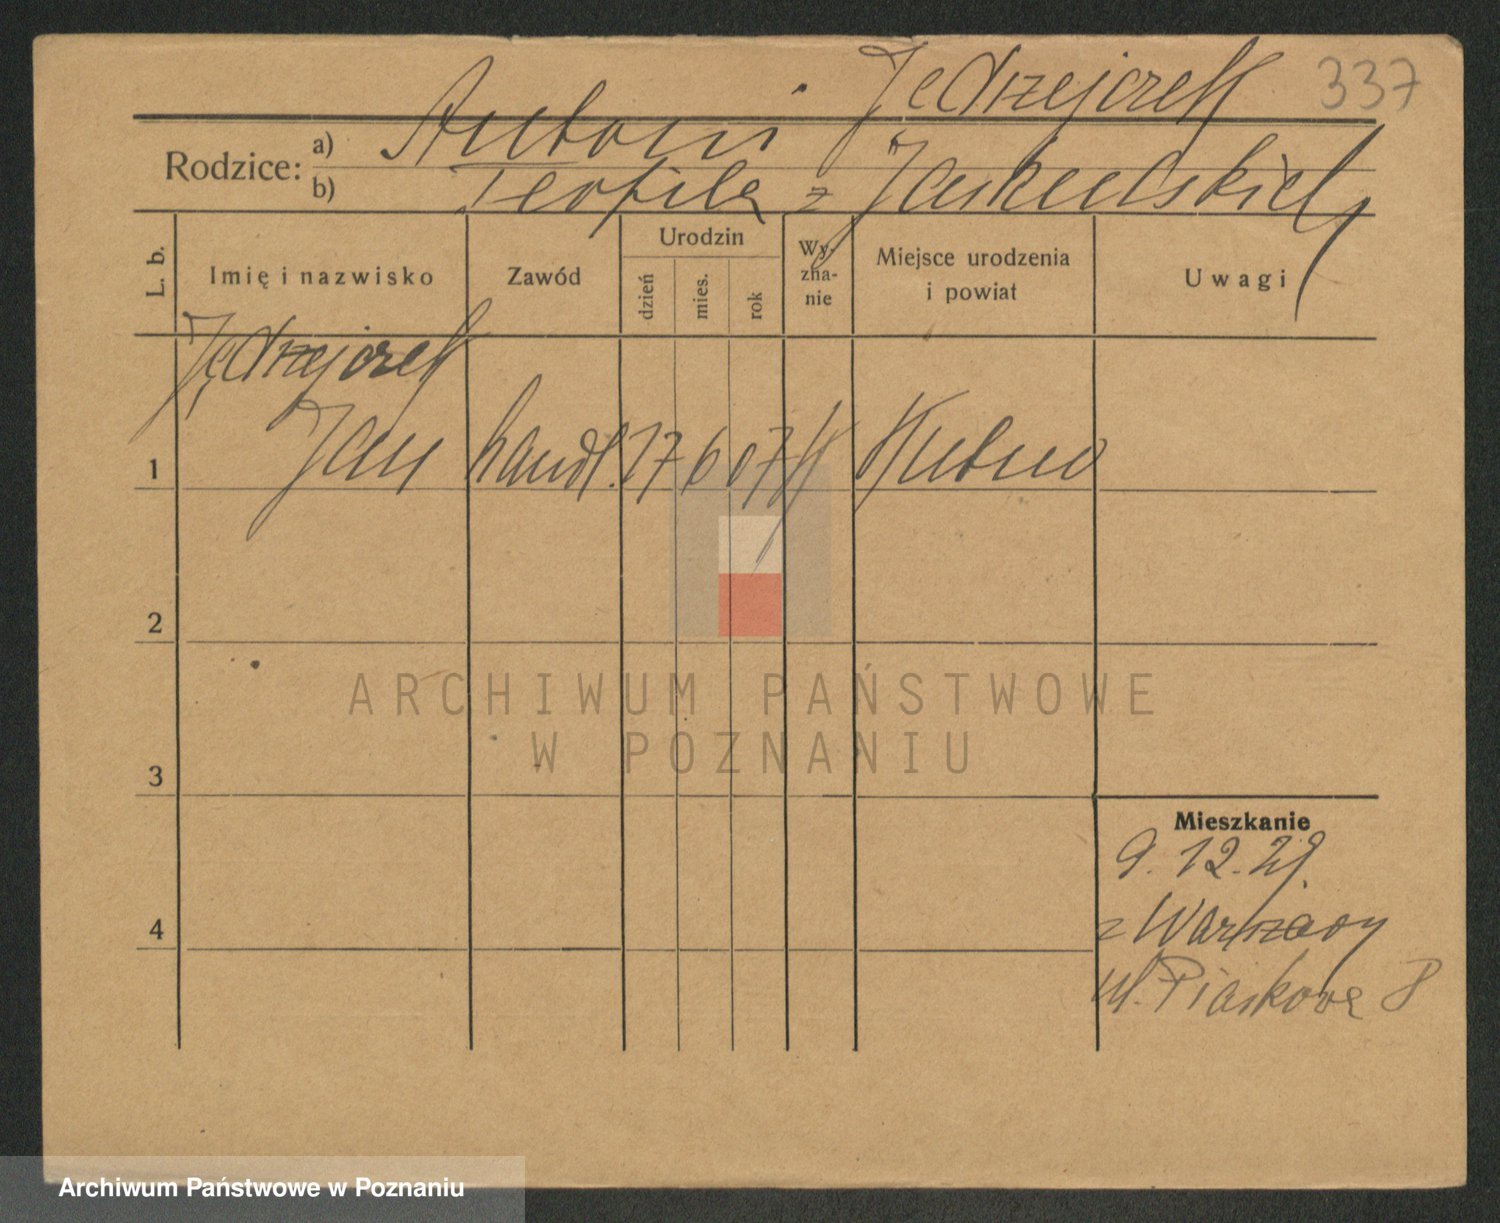 337
Antoni Jędrzejczak
Rodzice: a)
b) Teofila z Jaskulskich
L. b.
Imię i nazwisko
Zawód
Urodzin
dzień
mies.
rok
Wy-
zna-
nie
Miejsce urodzenia
i powiat
Uwagi
Jędrzejczak
1 Jan handl. 17 6 07 K Kutno
2
3
4
Mieszkanie
9. 12. 29.
z Warszawy
ul. Piaskowa 8
ARCHIWUM PAŃSTWOWE
W POZNANIU
Archiwum Państwowe w Poznaniu